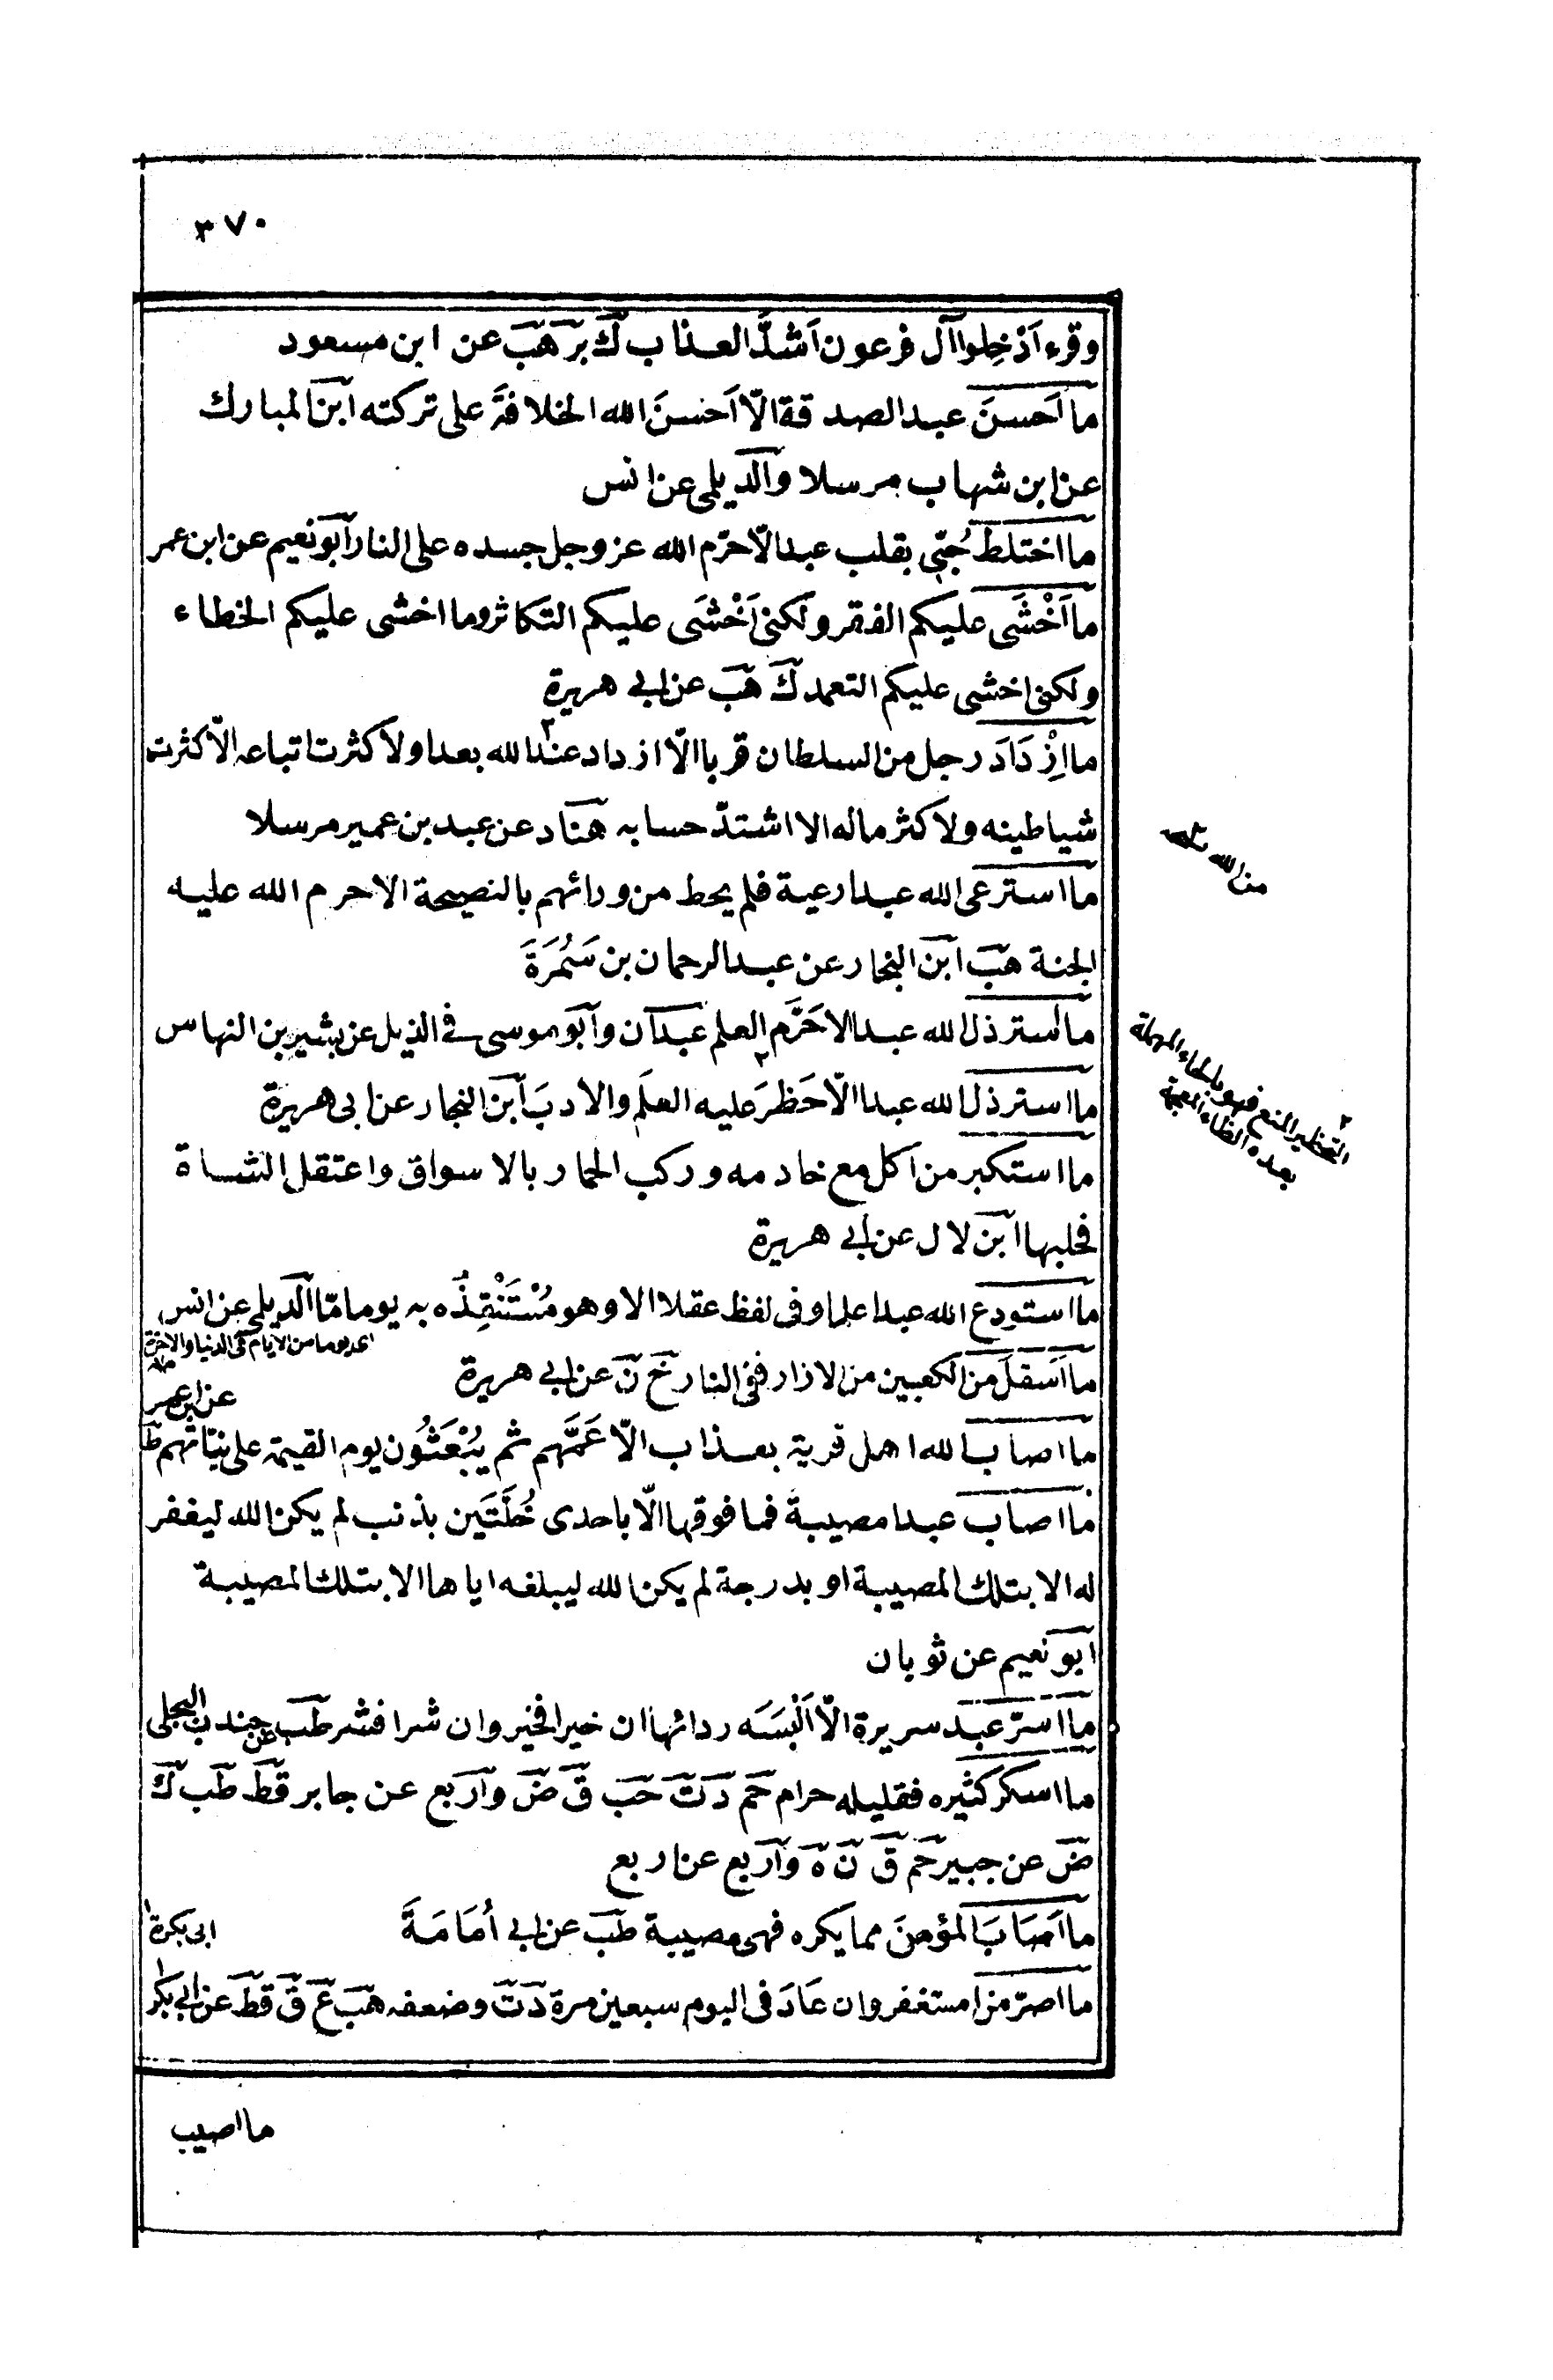 ٣٧٠
وقرء اَدْخِلوا آل فرعون اَشدَّ العذاب ك بز هب عن ابن مسعود
ما اَحسنَ عبد الصدقة الّا اَحسنَ الله الخلافةَ على تركته ابن المبارك
عن ابن شهاب مرسلا والديلمى عن انس
ما اختلط حُبّى بقلب عبد الّا حرّم الله عز وجل جسده على النار ابو نعيم عن ابن عمر
ما اَخْشَى عليكم الفقر ولكنى اَخْشَى عليكم التكاثر وما اخشى عليكم الخطاء
ولكنى اخشى عليكم التعمد ك هب عن ابى هريرة
ما ازْدَادَ رجل من السلطان قربا الّا ازداد عند الله بعدا ولا كثرت اتباعه الّا كثرت
شياطينه ولا كثر ماله الا اشتدّ حسابه هناد عن عبيد بن عمير مرسلا
من الله نسخه
ما استرعى الله عبدا رعية فلم يحط من ورائهم بالنصيحة الا حرم الله عليه
الجنة هب ابن النجار عن عبد الرحمان بن سَمُرَةَ
ما استرذل الله عبدا الا حَرَّم العلم عبدان وابو موسى فى الذيل عن بشير بن النهاس
ما استرذل الله عبدا الّا حَظرَ عليه العلَم والادبَ ابن النجار عن ابى هريرة
٢ التحظير المنع فهو بالحاء المهملة
بعده الظاء المعجمة
ما استكبر من اكل مع خادمه وركب الحمار بالاسواق واعتقل الشاة
فحلبها ابن لال عن ابى هريرة
ما استودع الله عبدا علما وفى لفظ عقلا الا وهو مُسْتَنْقِذُه به يوما مّا الديلمى عن انس
اى يوما من الايام فى الدنيا والاخرة
ما اَسفلَ من الكعبين من الازار ففى النار خ ن عن ابى هريرة
عن ابن عمر
ما اصاب الله اهل قرية بعذاب الّا عَمَّهم ثم يُبْعَثُون يوم القيمة على نيّاتهم ط
ما اصاب عبدا مصيبة فما فوقها الّا باحدى خُلّتَين بذنب لم يكن الله ليغفر
له الا بتلك المصيبة او بدرجة لم يكن الله ليبلغه اياها الا بتلك المصيبة
ابو نعيم عن ثوبان
ما اسرّ عبد سريرة الّا اَلْبسَه ردائها ان خيرا فخير وان شرا فشر طب عن جندب البجلى
ما اسكر كثيره فقليله حرام حم د ت حب ق ض واربع عن جابر قط طب ك
ض عن جبير حم ق ن ه واربع عن اربع
ما اَصَابَ المؤمنَ مما يكره فهى مصيبة طب عن ابى اُمَامَةَ
ابى بكرة
ما اصرّ من استغفر وان عَادَ فى اليوم سبعين مرة د ت وضعفه هب ع ق قط عن ابى بكر
ما اصيب